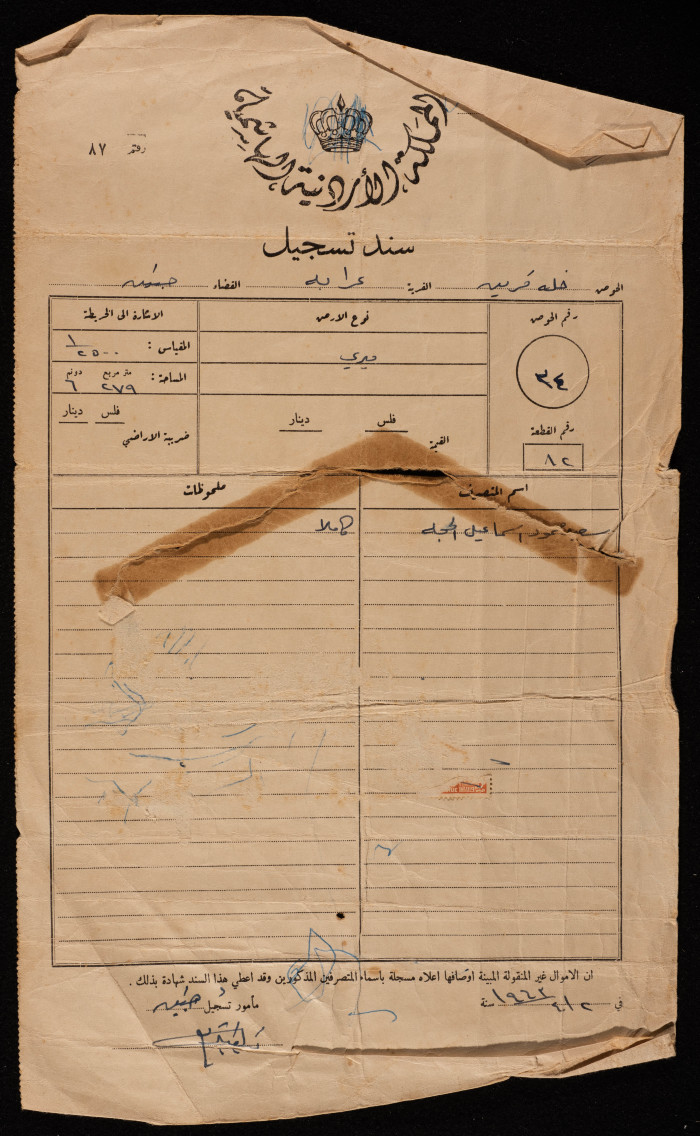 المملكة الأردنية الهاشمية
رقم ٨٧
سند تسجيل
الحوض خلة القرية عرابه القضاء جنين
رقم الحوض
نوع الارض
الاشارة الى الخريطة
٣٤
ميري
المقياس : ١/٢٥٠٠
المساحة : متر مربع ٢٧٩ دونم ٦
فلس دينار
فلس دينار
رقم القطعة
القيمة
ضريبة الاراضي
٨٢
اسم المتصرف
ملحوظات
اسماعيل
كاملا
ان الاموال غير المنقولة المبينة اوصافها اعلاه مسجلة باسماء المتصرفين المذكورين وقد اعطي هذا السند شهادة بذلك .
في سنة ١٩٦٣
مأمور تسجيل جنين